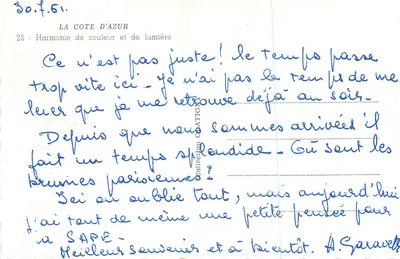 30.7.61.
LA COTE D'AZUR
25 - Harmonie de couleur et de lumière
Ce n'est pas juste ! le temps passe
trop vite ici - Je n'ai pas le temps de me
lever que je me retrouve déjà au soir.
Depuis que nous sommes arrivées il
fait un temps splendide - Où sont les
brumes parisiennes ?
Ici on oublie tout, mais aujourd'hui
j'ai tout de même une petite pensée pour
la SAPE -
Meilleur souvenir et à bientôt. A Garavel